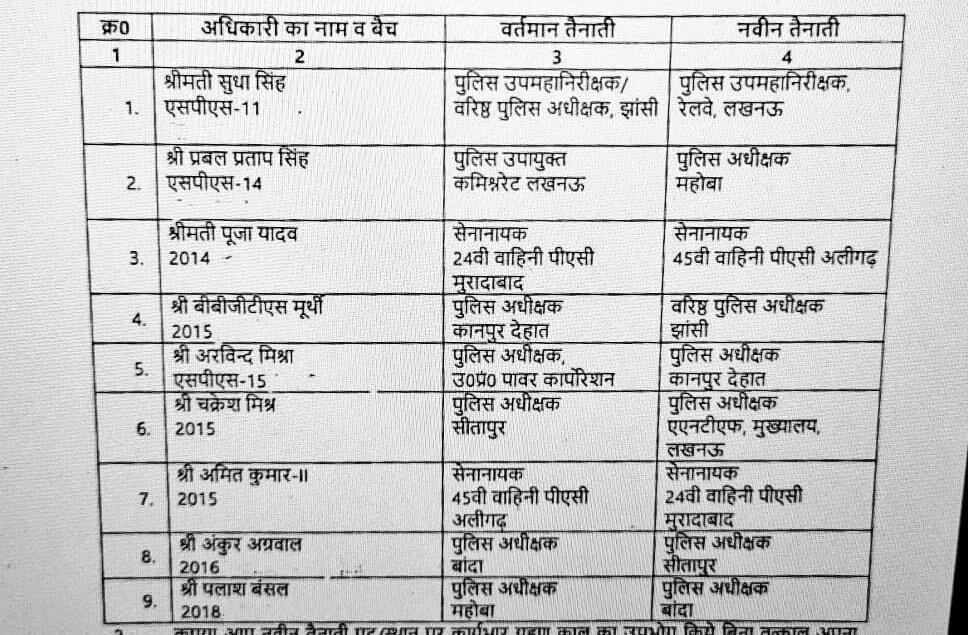 क्र0 अधिकारी का नाम व बैच वर्तमान तैनाती नवीन तैनाती
1 2 3 4
1. श्रीमती सुधा सिंह
एसपीएस-11
पुलिस उपमहानिरीक्षक/
वरिष्ठ पुलिस अधीक्षक, झांसी
पुलिस उपमहानिरीक्षक,
रेलवे, लखनऊ
2. श्री प्रबल प्रताप सिंह
एसपीएस-14
पुलिस उपायुक्त
कमिश्नरेट लखनऊ
पुलिस अधीक्षक
महोबा
3. श्रीमती पूजा यादव
2014
सेनानायक
24वी वाहिनी पीएसी
मुरादाबाद
सेनानायक
45वी वाहिनी पीएसी अलीगढ़
4. श्री बीबीजीटीएस मूर्थी
2015
पुलिस अधीक्षक
कानपुर देहात
वरिष्ठ पुलिस अधीक्षक
झांसी
5. श्री अरविन्द मिश्रा
एसपीएस-15
पुलिस अधीक्षक,
उ0प्र0 पावर कार्पोरेशन
पुलिस अधीक्षक
कानपुर देहात
6. श्री चक्रेश मिश्र
2015
पुलिस अधीक्षक
सीतापुर
पुलिस अधीक्षक
एएनटीएफ, मुख्यालय,
लखनऊ
7. श्री अमित कुमार-II
2015
सेनानायक
45वी वाहिनी पीएसी
अलीगढ़
सेनानायक
24वी वाहिनी पीएसी
मुरादाबाद
8. श्री अंकुर अग्रवाल
2016
पुलिस अधीक्षक
बांदा
पुलिस अधीक्षक
सीतापुर
9. श्री पलाश बंसल
2018
पुलिस अधीक्षक
महोबा
पुलिस अधीक्षक
बांदा
आप नवीन तैनाती पद/स्थान पर कार्यभार ग्रहण काल का उपभोग किये बिना तत्काल अपना